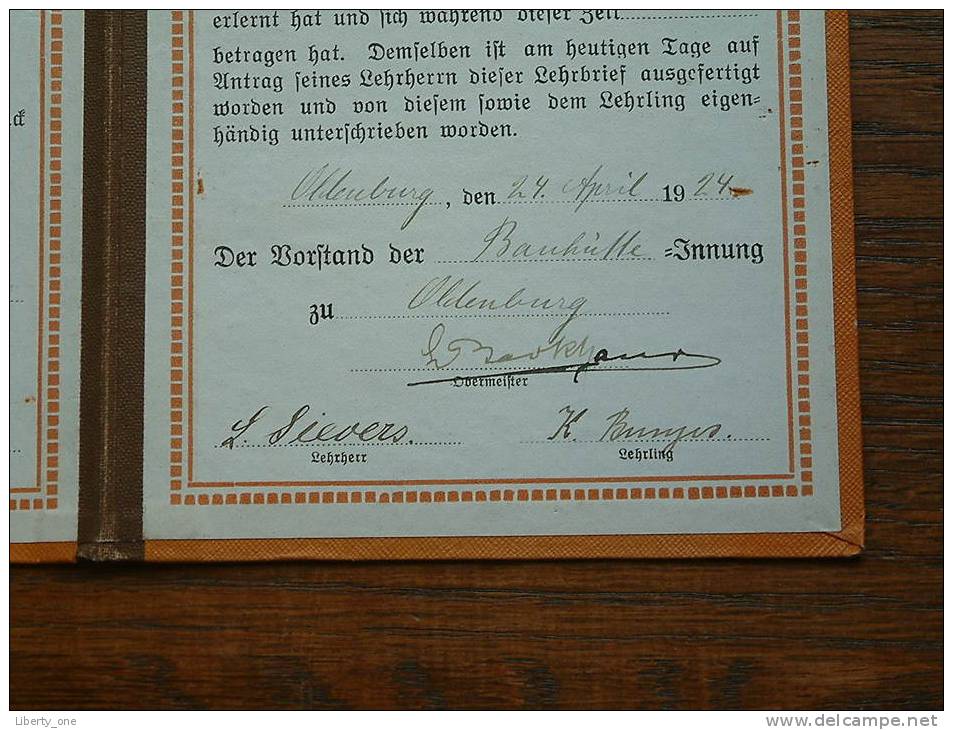 erlernt hat und sich während dieser Zeit
betragen hat. Demselben ist am heutigen Tage auf
Antrag seines Lehrherrn dieser Lehrbrief ausgefertigt
worden und von diesem sowie dem Lehrling eigen=
händig unterschrieben worden.
Oldenburg, den 24. April 1924
Der Vorstand der Bauhütte =Innung
zu Oldenburg
Obermeister
L. Sievers. K.
Lehrherr Lehrling
Liberty_one www.delcampe.net